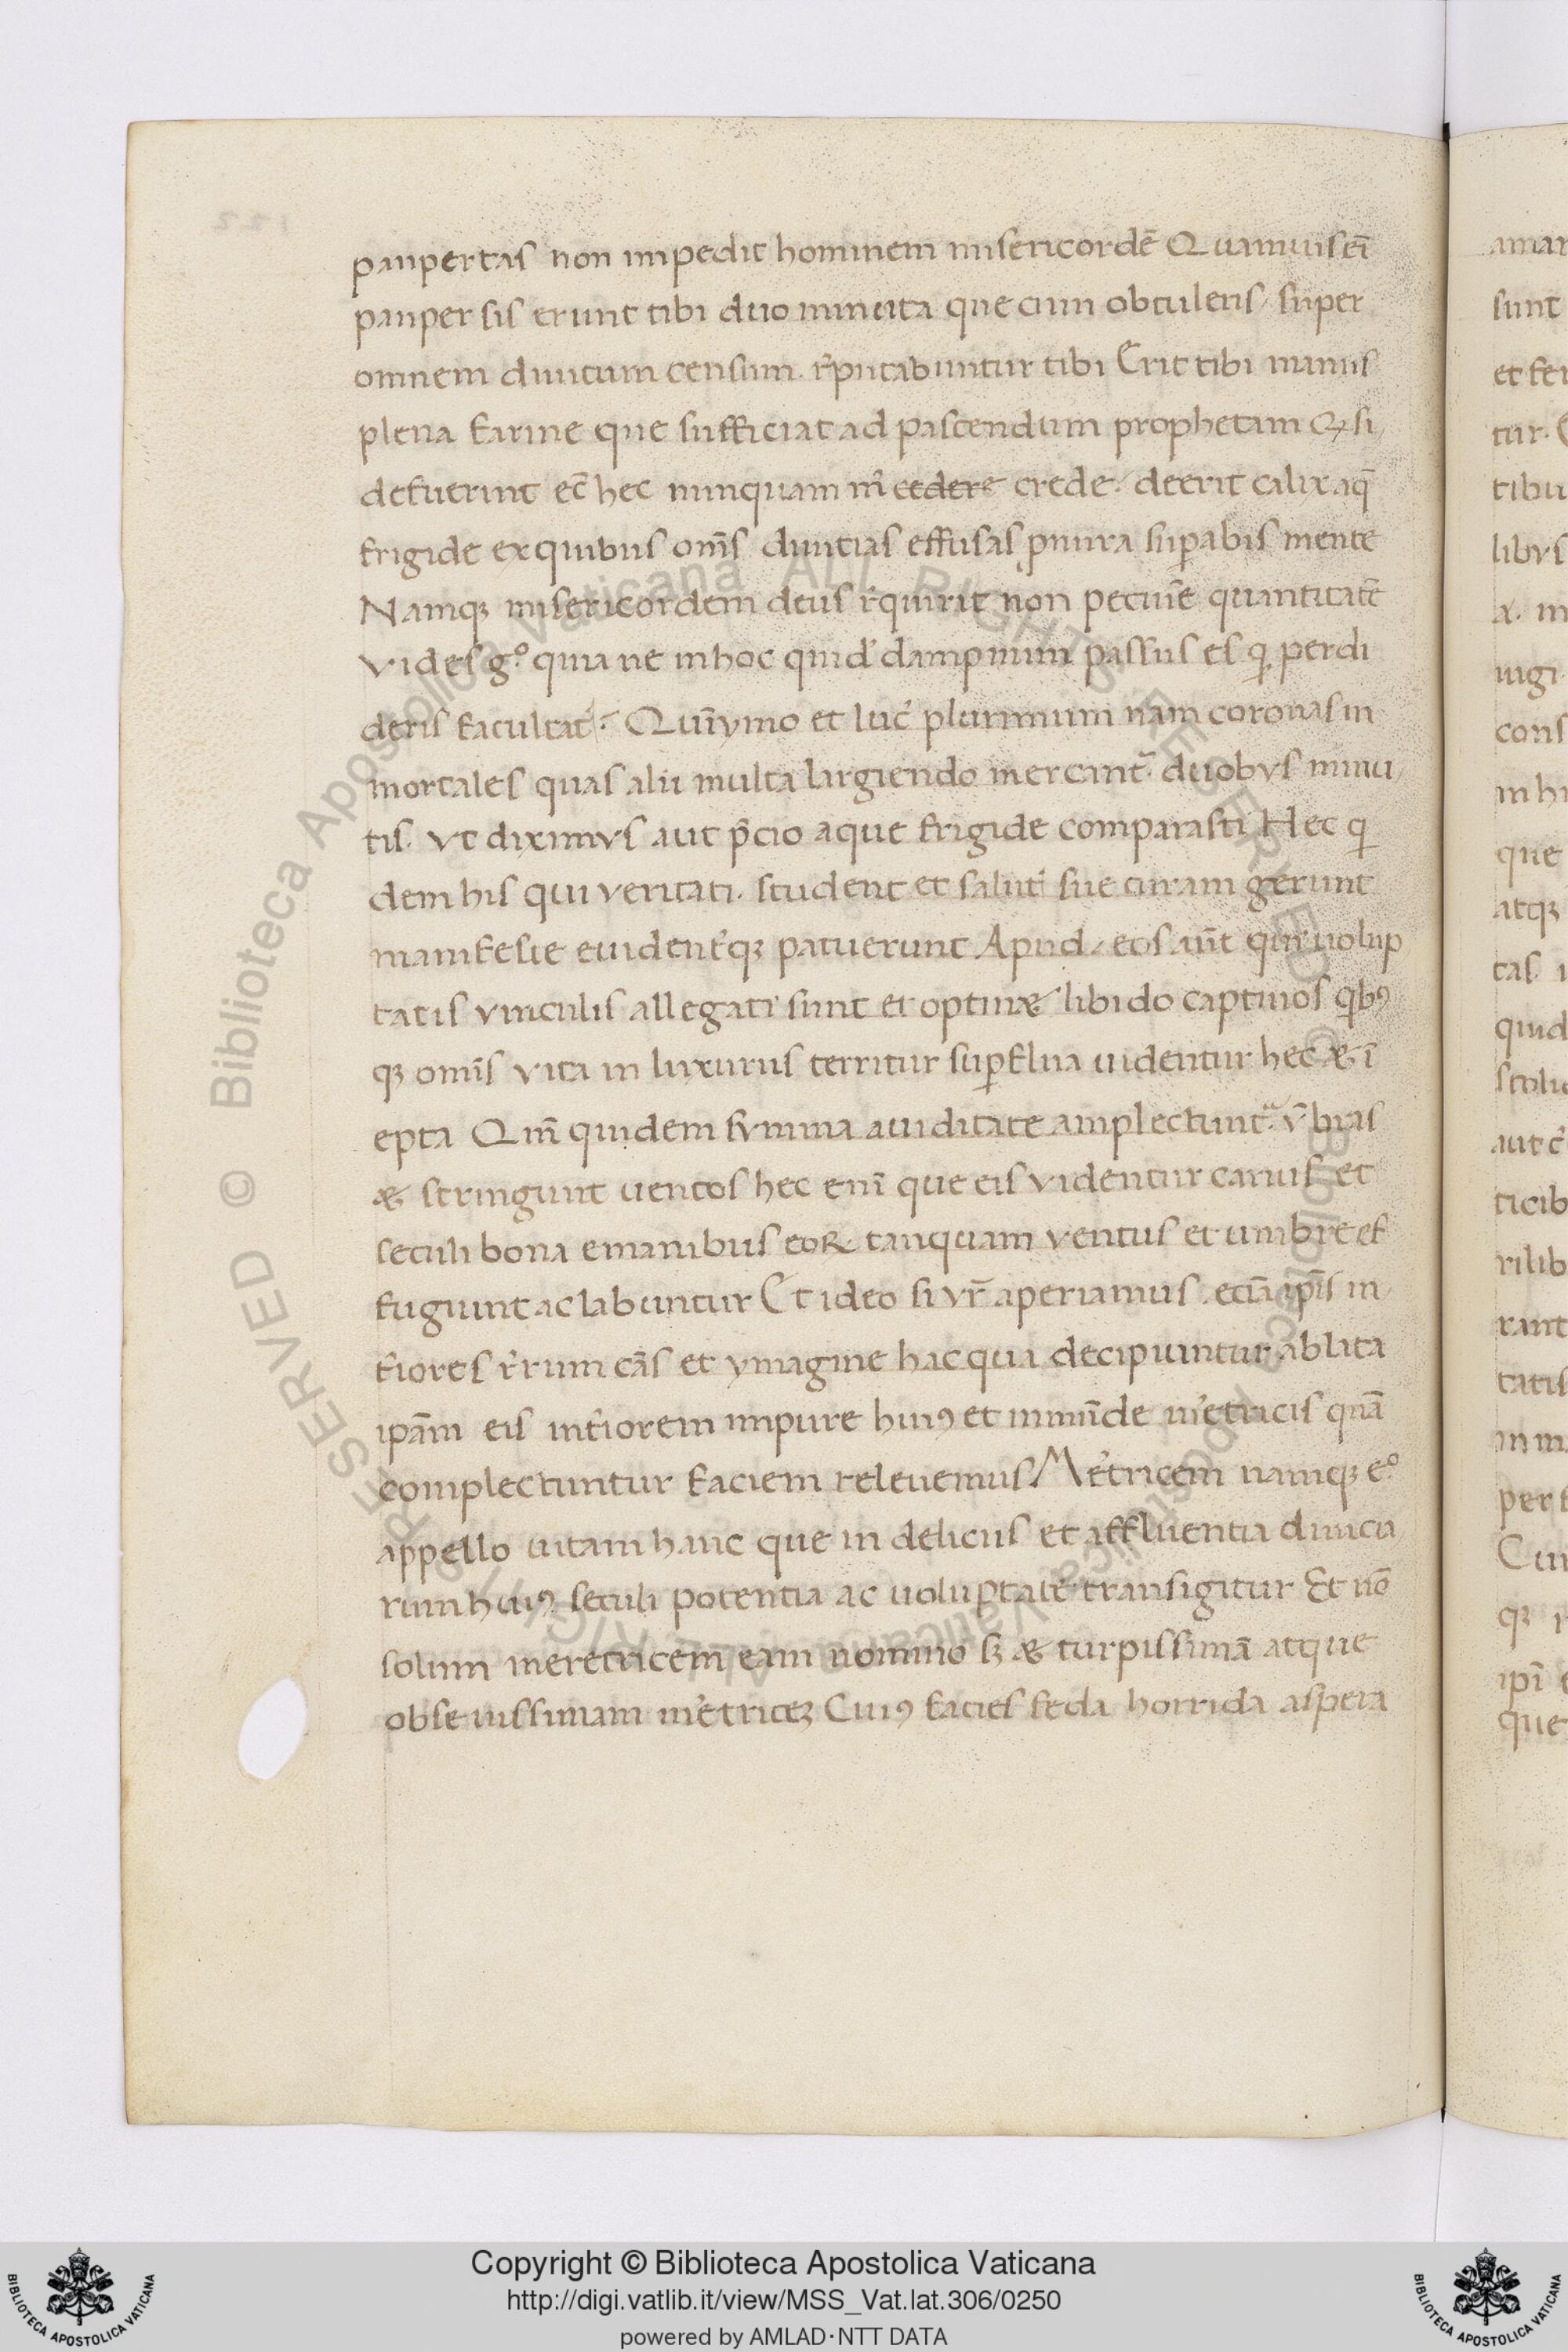 paupertas non impedit hominem misericordē Quamuis eī
pauper sis erunt tibi duo minuta que cum obtuleris / super
omnem diuitum censum. r̄putabuntur tibi Erit tibi manus
plena farine que sufficiat ad pascendum prophetam Qꝫ si
defuerint ec̄ hec nunquam m̄ cedere crede. deerit calix aq̄
frigide ex quibus om̄s diuitias effusas pmura suꝑabis mente
Namqꝫ misericordem deus r̄quirit non pecuīe quantitatē
Vides gͦ. quia ne in hoc quid' dampnum passus es q perdi
deris facultat'. Quīymo et luc' plurimum nam coronas in
mortales quas alii multa largiendo mercant᷑. duobus minu
tis. Vt diximus aut p̄cio aque frigide comparasti Hec q
dem his qui veritati. student et saluti sue curam gerunt
manifeste euident'qꝫ patuerunt Apud. eos aūt qui uolup
tatis vinculis allegati sunt et optinꝫ libido captiuos qbꝯ
qꝫ om̄s vita in luxuriis territur suꝑflua uidentur hec & ī
epta Qm̄ quidem summa auiditate amplectunt᷑. v̄bras
& stringunt uentos hec enī que eis videntur carius et
seculi bona emanibus eoꝝ tanquam ventus et umbre ef
fugiunt ac labuntur Et ideo si vr̄ aperiamus. eciā ip̄is in
t'iores r'rum cās et ymagine hac qua decipiuntur ablita
ipām eis int'iorem impure huiꝯ et inmūde m'etricis quā
complectuntur faciem releuemus M'etricem namqꝫ eͦ.
appello uitam hanc que in deliciis et affluentia diuicia
rum huiꝯ seculi potentia ac uoluptate transigitur Et nō
solum meretricem eam nomino sꝫ & turpissimā atque
obseuissimam m'etriceꝫ Cuiꝯ facies feda horrida aspera
Copyright © Biblioteca Apostolica Vaticana
http://digi.vatlib.it/view/MSS_Vat.lat.306/0250
powered by AMLAD·NTT DATA